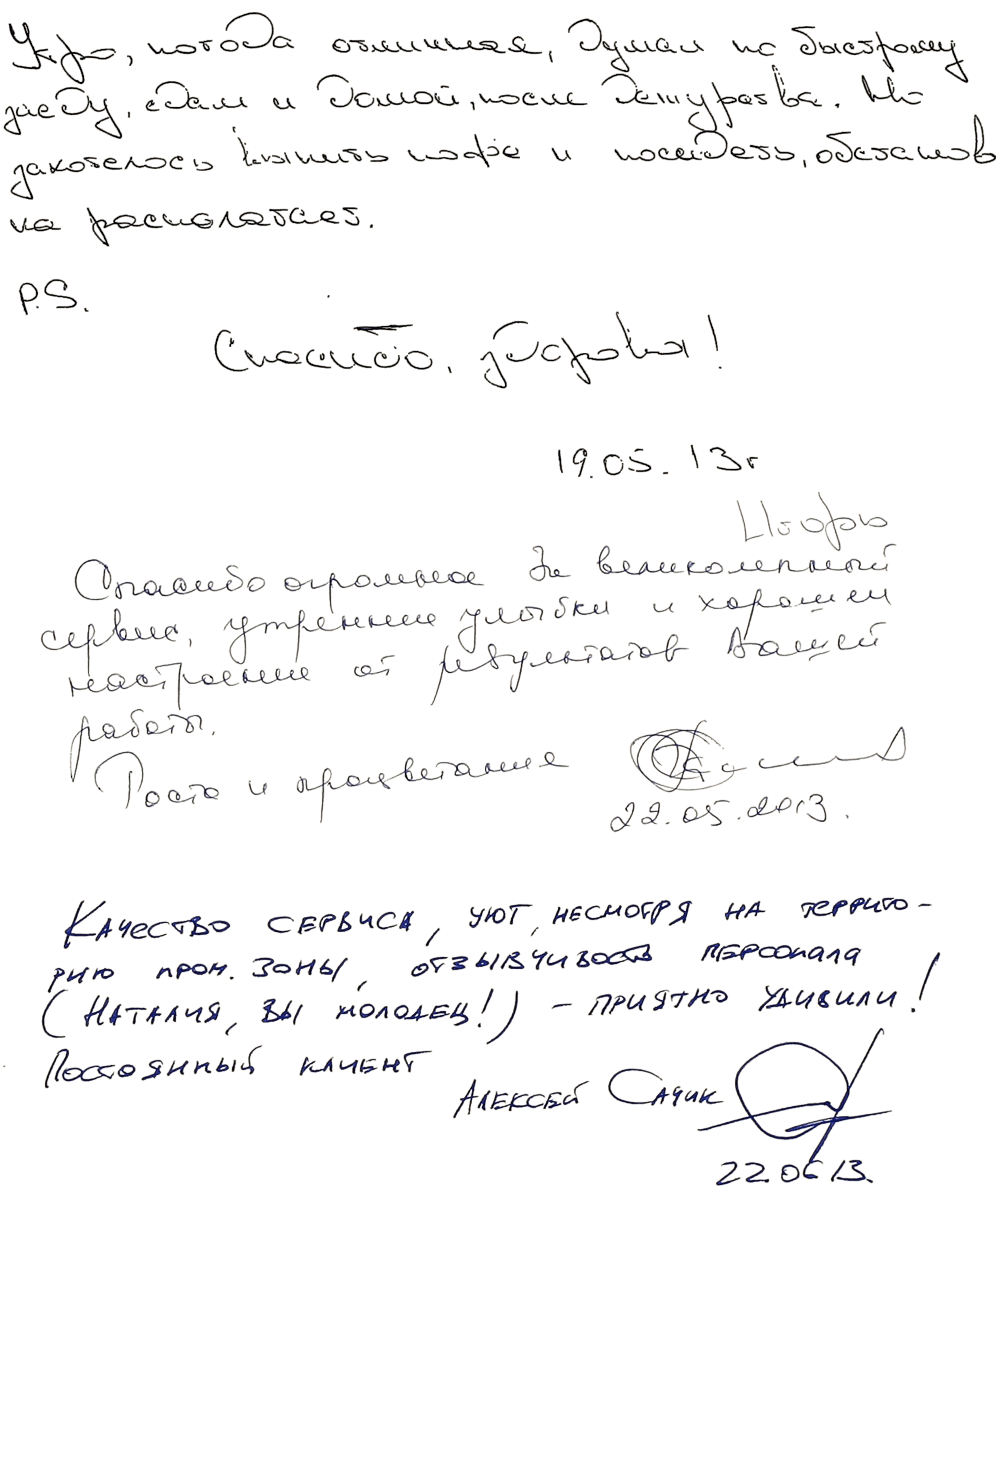 Утро, погода отличная, думал по быстрому
заеду, сдам и домой, после дежурства. Но
захотелось выпить кофе и посидеть, обстанов
ка располагает.
P.S.
Спасибо, здорово!
19.05.13г
Игорь
Спасибо огромное за великолепный
сервис, утренние улыбки и хорошее
настроение от результатов Вашей
работы.
Роста и процветания
22.05.2013.
Качество сервиса, уют, несмотря на террито-
рию пром. зоны, отзывчивость персонала
(Наталия, Вы молодец!) – приятно удивили!
Постоянный клиент
Алексей Сачик
22.06 13.